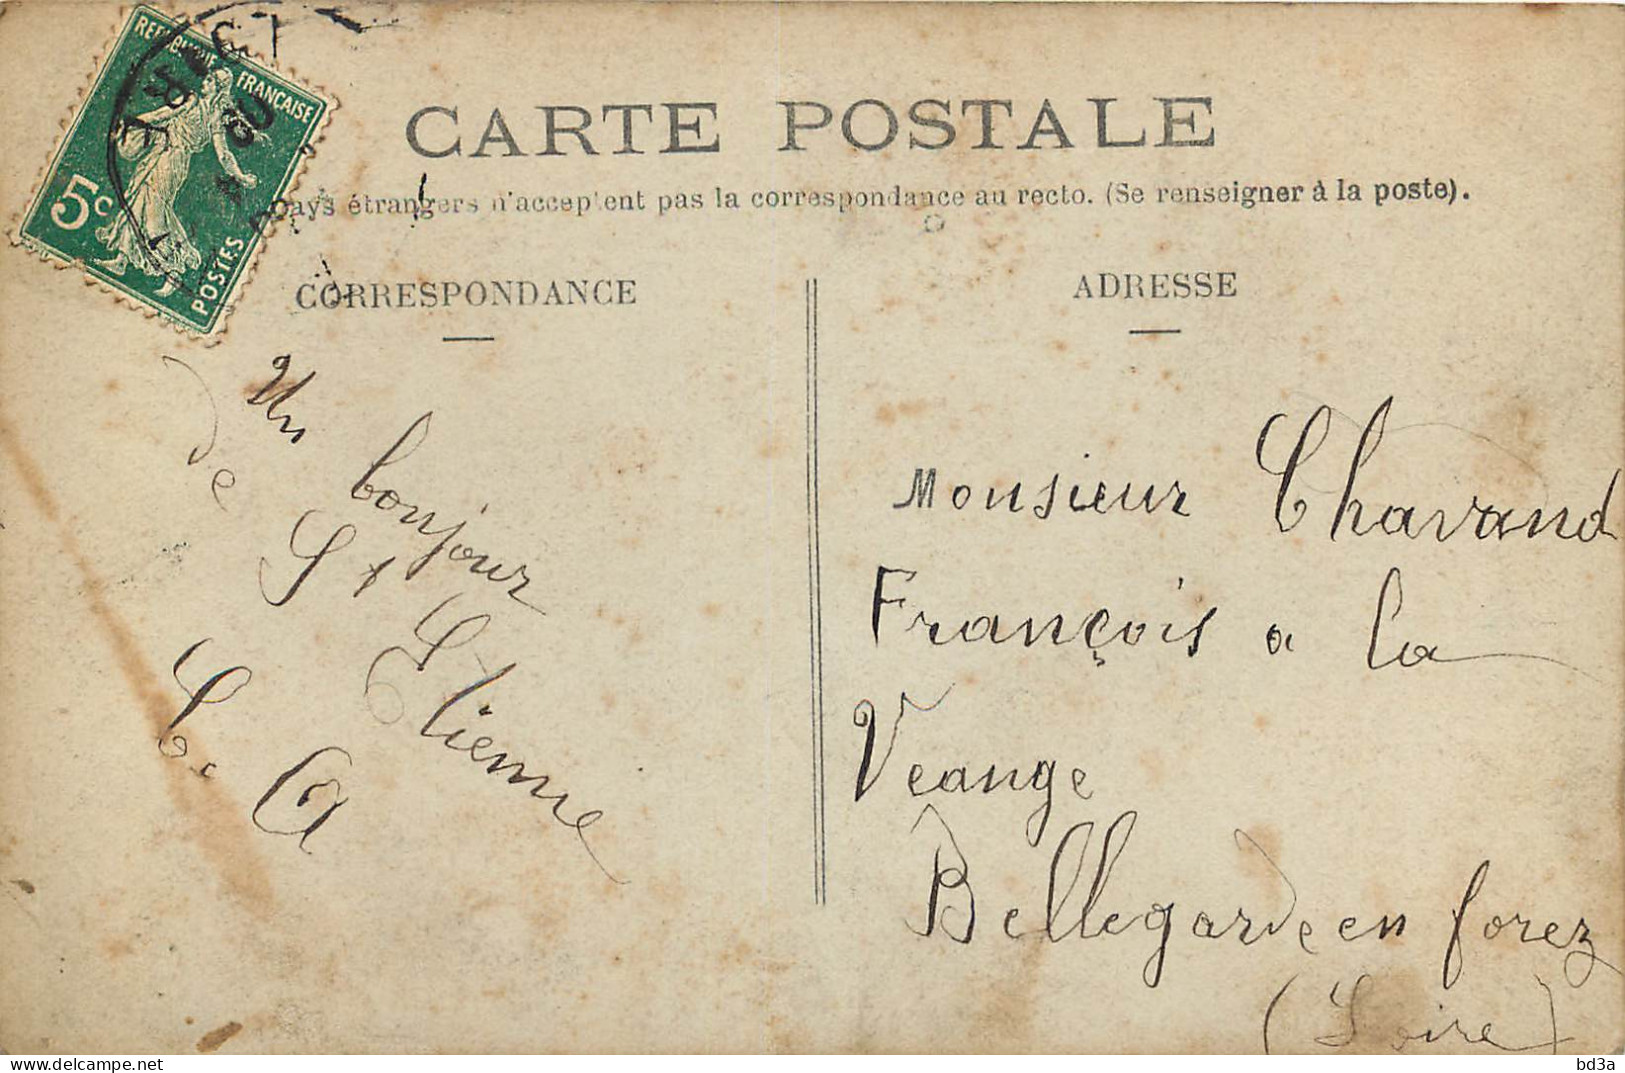 REPUBLIQUE FRANÇAISE
5c
POSTES
CARTE POSTALE
pays étrangers n'acceptent pas la correspondance au recto. (Se renseigner à la poste).
CORRESPONDANCE
ADRESSE
Un bonjour
de St Etienne
C. A
Monsieur Chavand
François a La
Veange
Bellegarde en forez
(Loire)
bd3a